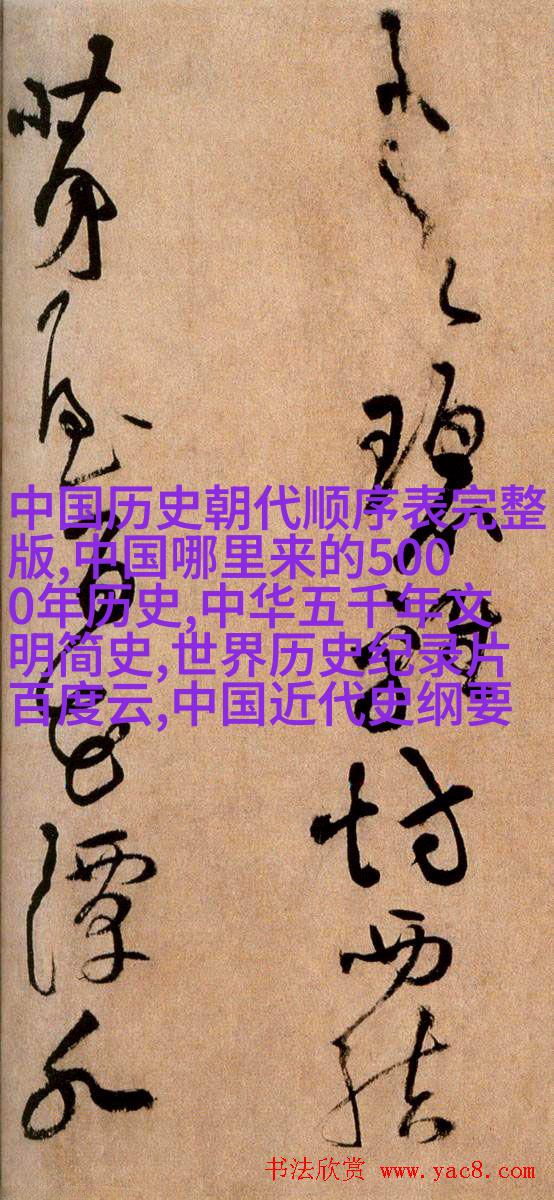 碧雞坊西結
茅屋百花潭水
中国历史朝代顺序表完整
版,中国哪里来的500
0年历史,中华五千年文
明简史,世界历史纪录片
百度云,中国近代史纲要
书法欣赏 www.yac8.com